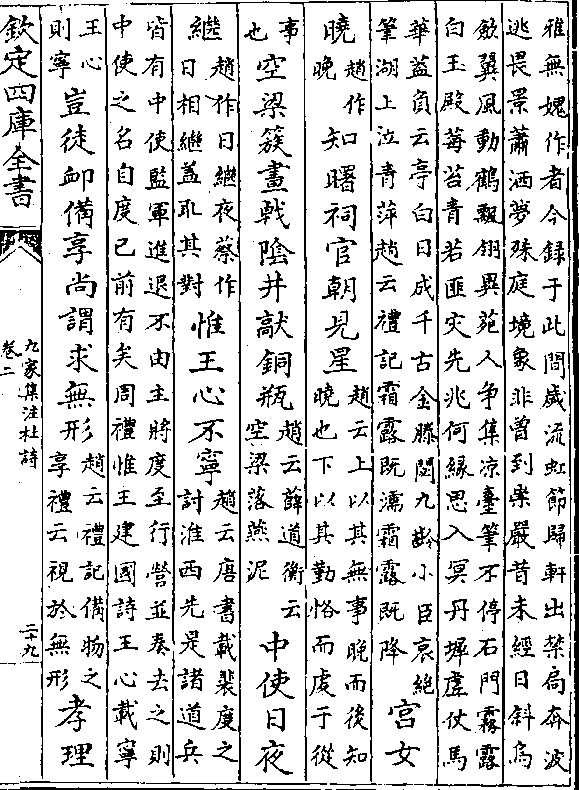 雅無媿作者今録于此閒歲流虹節歸軒出禁扃奔波
逃畏景蕭洒夢殊庭境象非曽到崇嚴昔未經日斜烏
斂翼風動鶴飄翎異苑人争集凉臺筆不停石門霧露
白玉殿莓苔青若匪災先兆何縁思入冥丹墀虛仗馬
華葢負云亭白日成千古金縢閟九齡小臣哀絶
筆湖上泣青萍趙云禮記霜露既濡霜露既降
宫女
曉
趙作
晚
知曙祠官朝見星
趙云上以其無事晚而後知
曉也下以其勤恪而處于從
事
也
空梁簇畫戟陰井敲銅瓶
趙云薛道衡云
空梁落燕泥
中使日夜
繼
趙作日繼夜蔡作
日相繼葢耴其對
惟王心不寧
趙云唐書載裴度之
討淮西先是諸道兵
皆有中使監軍進退不由主將度至行營並奏去之則
中使之名自度已前有矣周禮惟王建國詩王心載寧
王心
則寧
豈徒卹備享尚謂求無形
趙云禮記備物之
享禮云視於無形
孝理
欽定四庫全書
九家集注杜詩
卷二
二十九